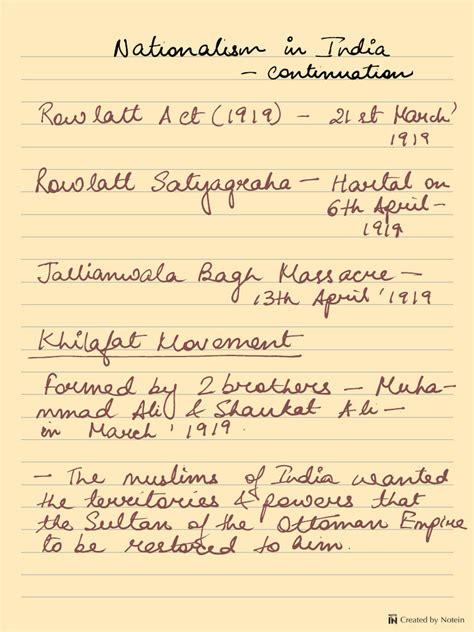 Nationalism in India
- continuation
Rowlatt Act (1919) - 21st March'
1919
Rowlatt Satyagraha - Hartal on
6th April -
1919
Jallianwala Bagh Massacre -
13th April '1919
Khilafat Movement
Formed by 2 brothers - Muha-
mmad Ali & Shaukat Ali -
in March '1919.
- The muslims of India wanted
the territories & powers that
the Sultan of the Ottoman Empire
to be restored to him.
NOTE
IN Created by Notein